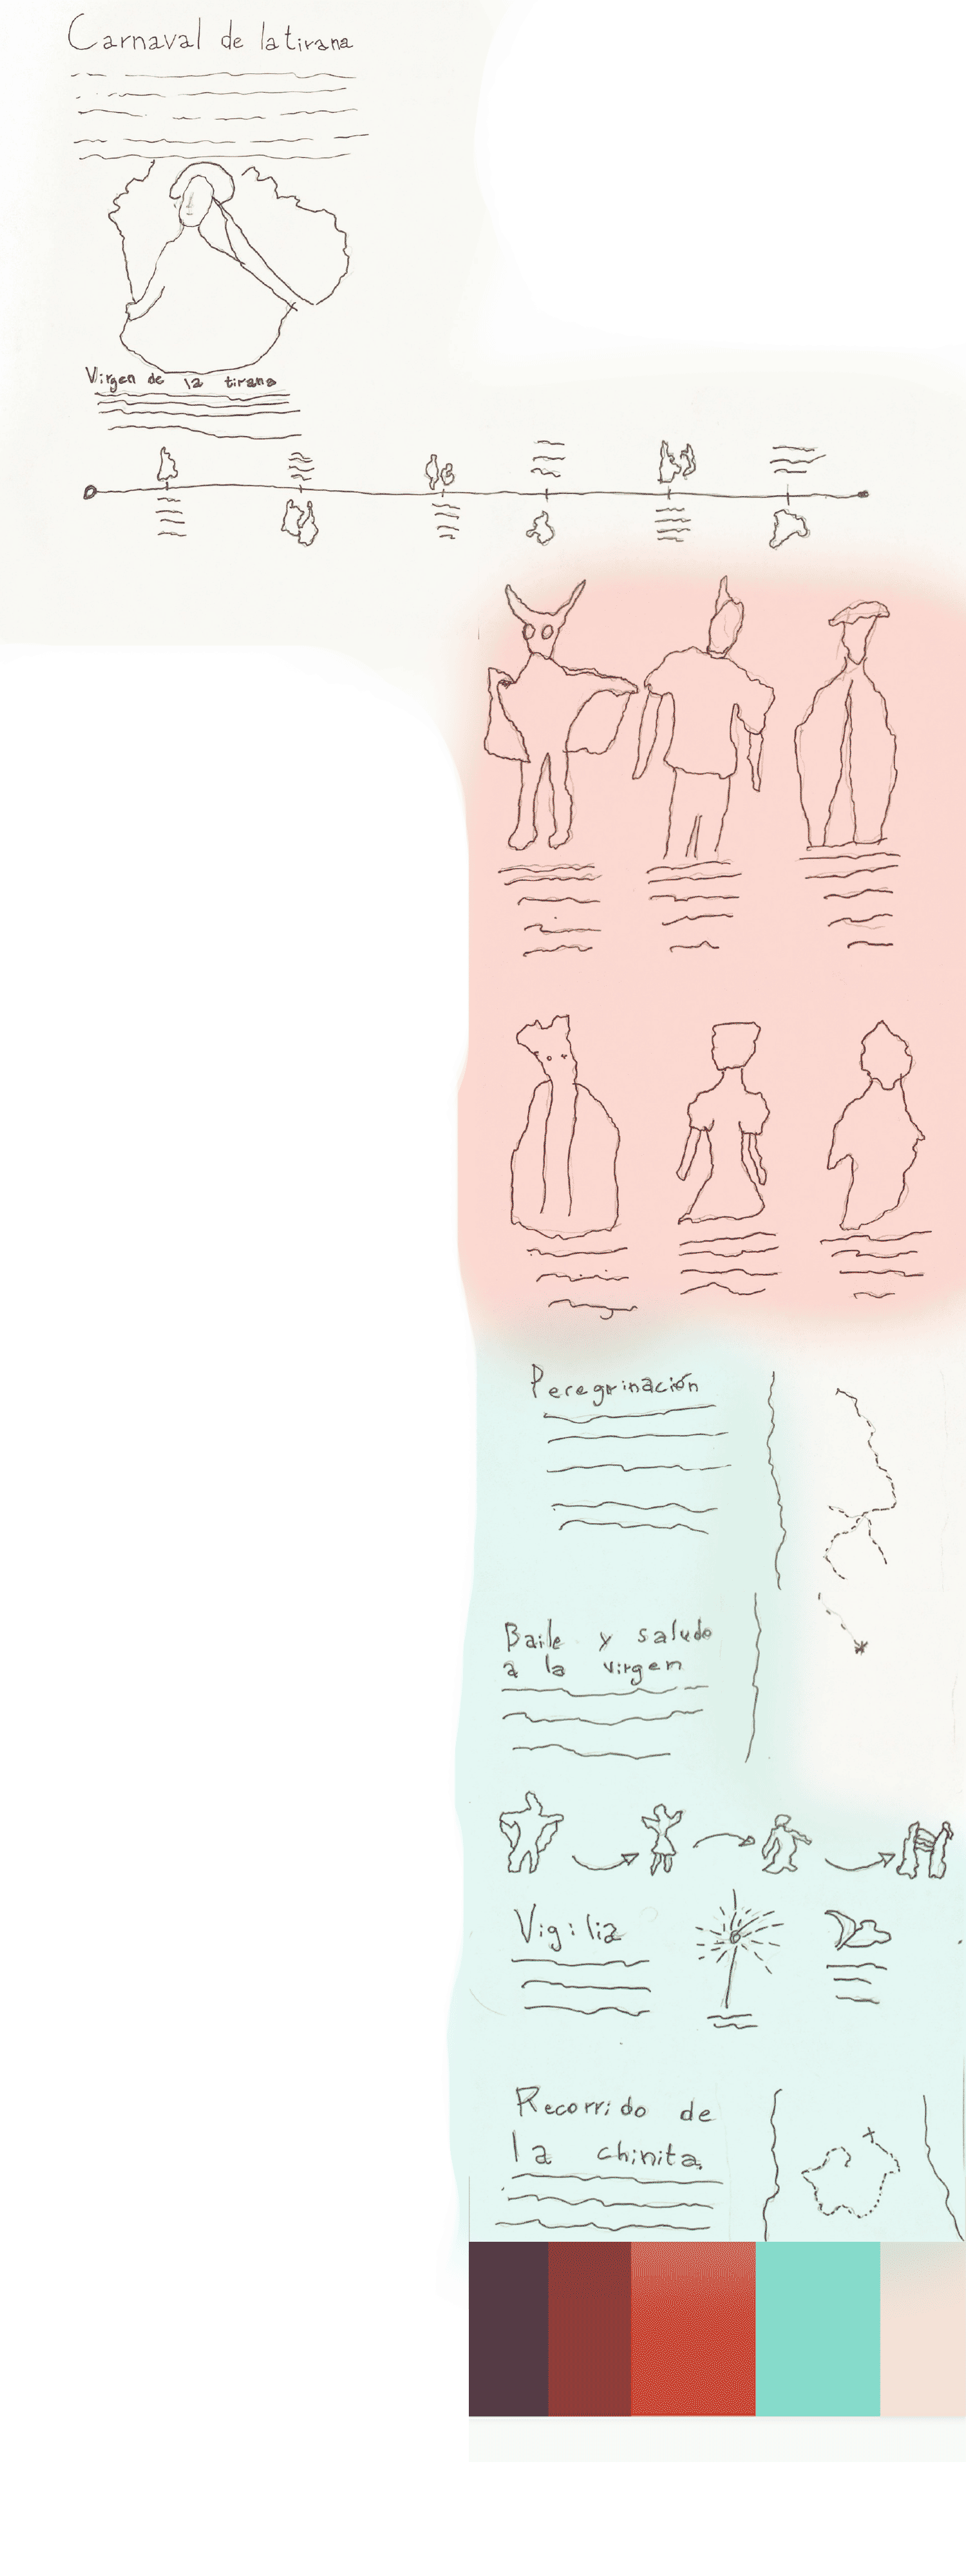 Carnaval de la tirana
Virgen de la tirana
Peregrinación
Baile y saludo
a la virgen
Vigilia
Recorrido de
la chinita